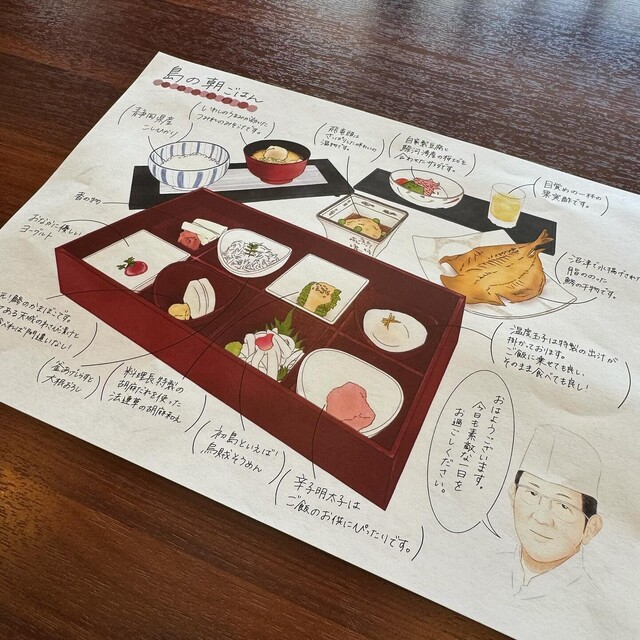 島の朝ごはん
静岡県産
こしひかり
いわしのうまみが
つみれのみそ汁です。
さっぱりした味わいの
温物です。
自家製豆腐に
駿河湾産の桜エビを
合わせたサラダです。
目覚めの一杯の
果実酢です。
香の物
おなかに優しい
ヨーグルト
沼津で水揚げされた
脂ののった
鯵の干物です。
温度玉子は特製の出汁が
掛かっております。
ご飯に乗せても良し
そのまま食べても良し!
元!鯵のかまぼこです。
である天城のわさび漬けと
べれば間違いなし!
釜あげしらすと
大根おろし
料理長特製の
胡麻だれを使った
法連草の胡麻和え
初島といえば
烏賊そうめん
辛子明太子は
ご飯のお供にぴったりです。
おはようございます。
今日も素敵な一日を
お過ごしください。